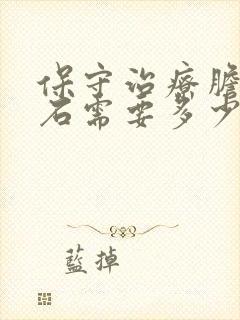 保守治疗膽
石需要多少
藍掉